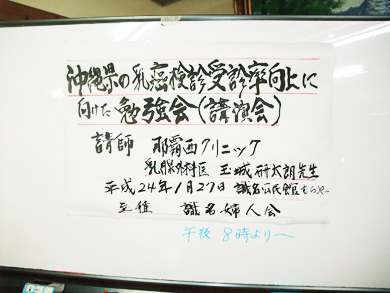 沖縄県の乳癌検診受診率向上に
向けた勉強会(講演会)
講師 那覇西クリニック
乳腺外科医 玉城研太朗先生
平成24年1月27日 識名公民館むらやー
主催 識名婦人会
午後 8時より〜